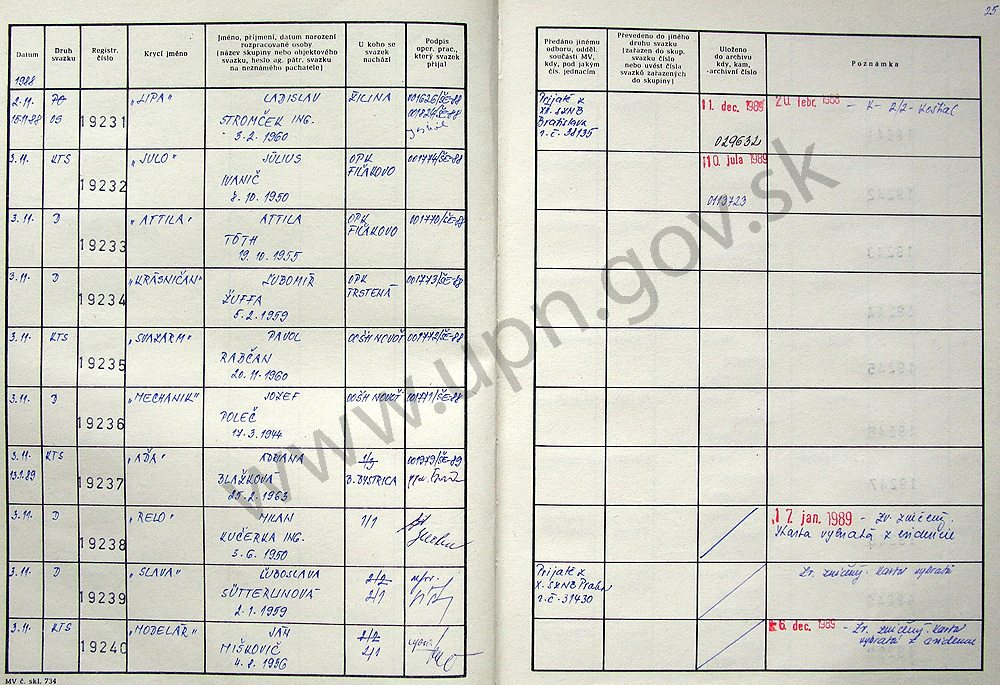 25
Datum
Druh svazku
Registr. číslo
Krycí jméno
Jméno, příjmení, datum narození
rozpracované osoby
(název skupiny nebo objektového
svazku, heslo ag. pátr. svazku
na neznámého pachatele)
U koho se
svazek
nachází
Podpis
oper. prac.,
který svazek
přijal
Předáno jinému
odboru, odděl.
součásti MV,
kdy, pod jakým
čís. jednacím
Převedeno do jiného
druhu svazku
(zařazen do skup.
svazku číslo
nebo uvést čísla
svazků zařazených
do skupiny)
Uloženo
do archivu
kdy, kam,
-archivní číslo
Poznámka
1988
2.11. PO 19231 „LIPA" LADISLAV ŽILINA 001626/ŠE-88
15.11.88 OS STROMČEK ING.
3.2.1960
Prijaté z
XII. SZNB
Bratislava
r.č. 38135
11. dec. 1989
029632
20. febr. 1988 – K-2/2- Koštial
3.11. KTS 19232 „JULO" JÚLIUS OPK 001774/ŠE-88
IVANIČ FIĽAKOVO
8.10.1950
10. júla 1989
0113723
3.11. D 19233 „ATTILA" ATTILA OPK 001770/ŠE-88
TÓTH FIĽAKOVO
19.10.1955
3.11. D 19234 „KRÁSNIČAN" ĽUBOMÍR OPK 001773/ŠE-88
ŽUFFA TRSTENÁ
5.2.1959
3.11. KTS 19235 „SVAZARM" PAVOL OOŠH NOVOŤ 001772/ŠE-88
RADČAN
20.11.1960
3.11. D 19236 „MECHANIK" JOZEF OOŠH NOVOŤ 001771/ŠE-88
POLEČ
17.3.1944
3.11. KTS 19237 „AĎA" ADRIANA 001979/ŠE-89
13.1.89 BLAŽKOVÁ B. BYSTRICA
25.2.1963
3.11. D 19238 „RELO" MILAN 1/1
KUČERKA ING.
3.6.1950
17. jan. 1989 – Zv. zničený.
Karta vybratá z evidencie
3.11. D 19239 „SLAVA" ĽUBOSLAVA 2/2
SÜTTERLINOVÁ 2/1
2.1.1959
Prijaté z
X. SZNB Praha
r.č. 31430
Zv. zničený. Karta vybratá
3.11. KTS 19240 „MODELÁŘ" JÁN 2/2
MIŠKOVIČ 2/1
4.2.1956
6. dec. 1989 – Zv. zničený. Karta
vybratá z evidencie
MV č. skl. 734
www.upn.gov.sk